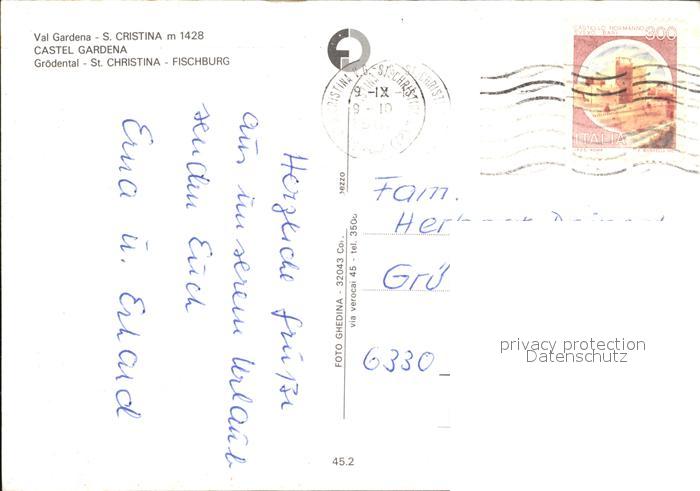 Val Gardena - S. CRISTINA m 1428
CASTEL GARDENA
Grödental - St. CHRISTINA - FISCHBURG
Herzliche Grüße
aus unserem Urlaub
senden Euch
Erna u. Erhard
45.2
FOTO GHEDINA - 32043 Co
via verocai 45 - tel. 350
CASTELLO NORMANNO
SVEVO BARI
300
ITALIA
9 -IX-
9 - 10
Fam.
6330
privacy protection
Datenschutz